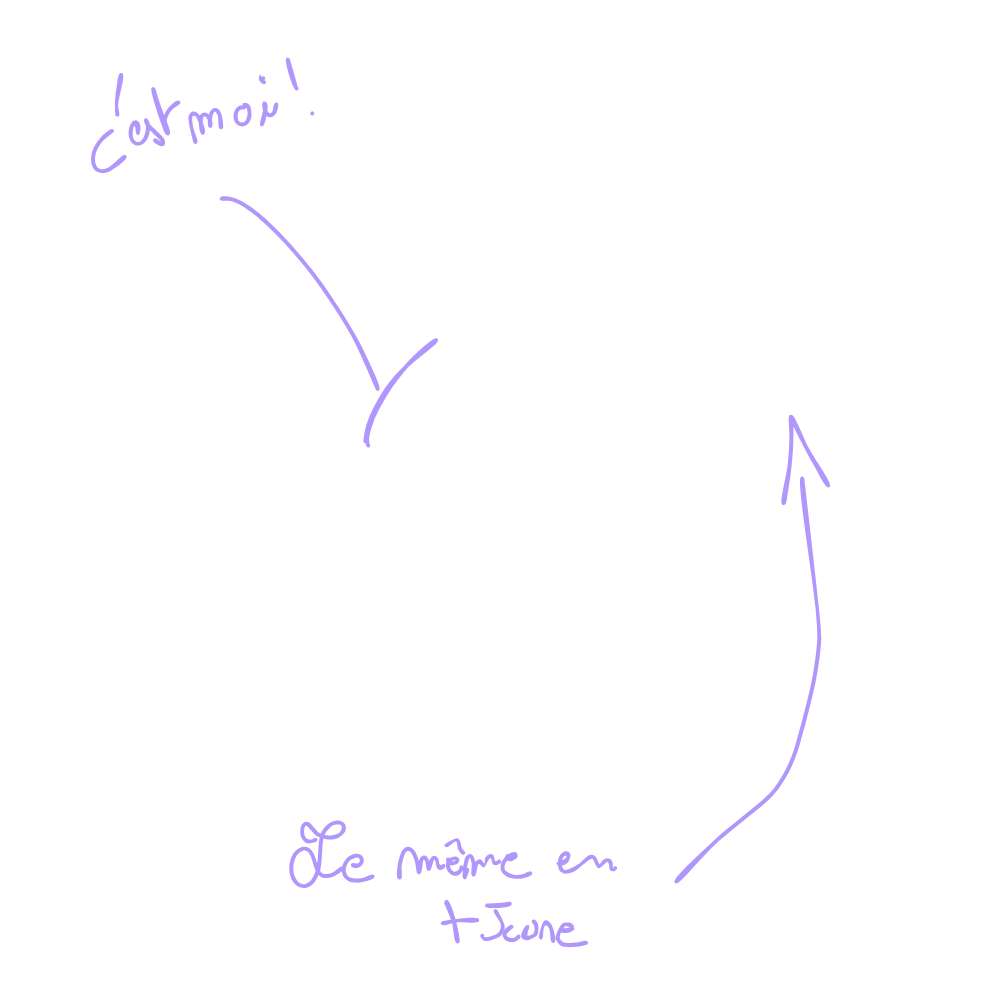 c'est moi !
Le même en
+ Jeune